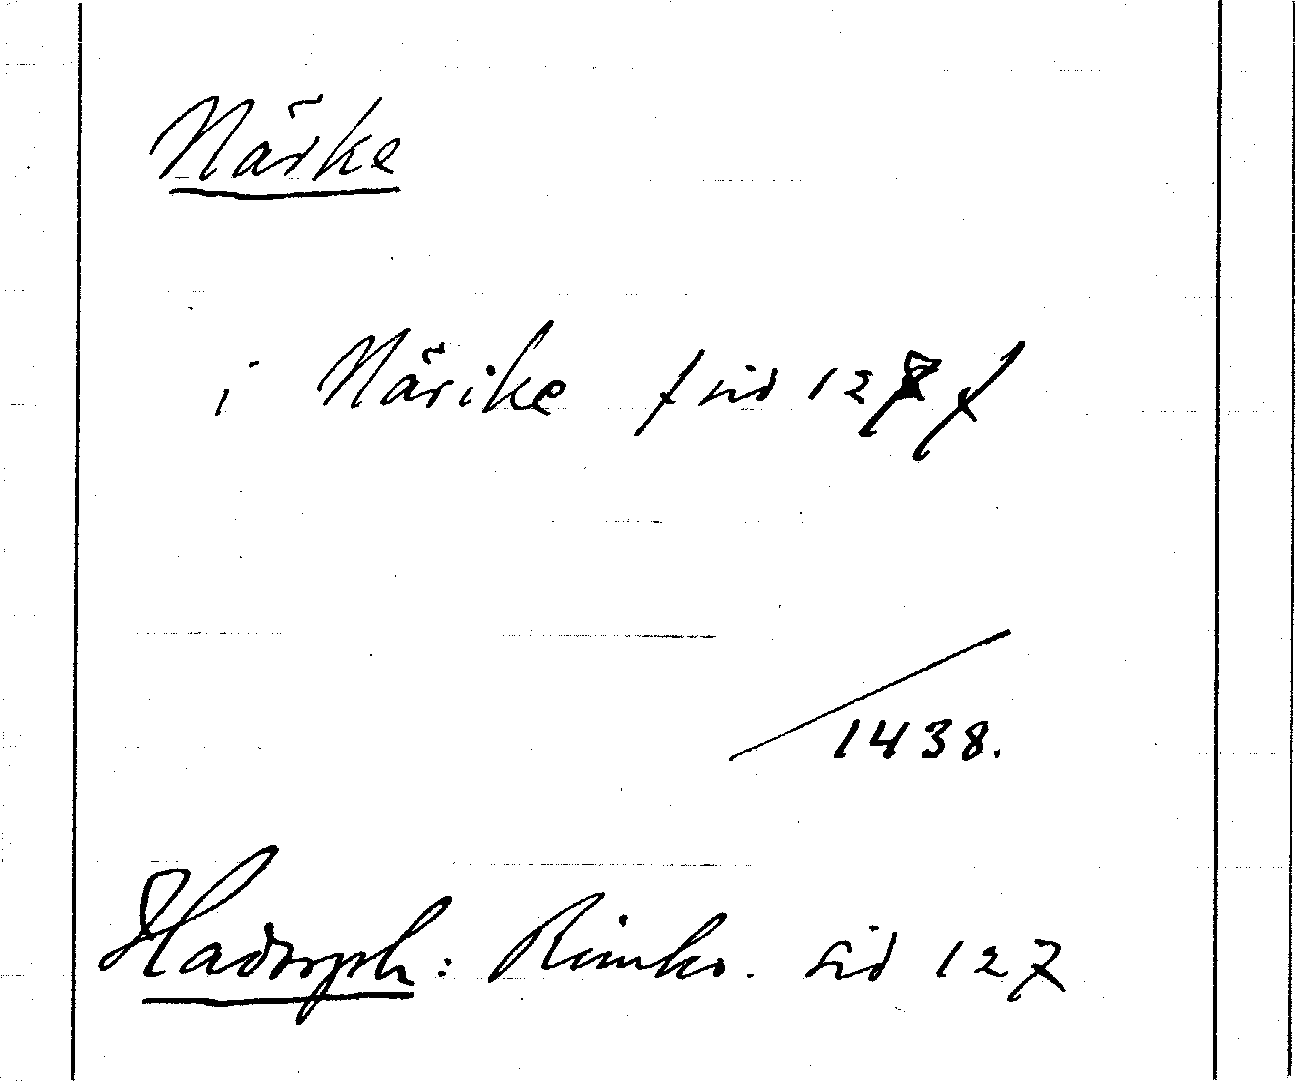 Närke
i Närike f sid 127 f
1438.
Hadorph: Rimkr. sid 127